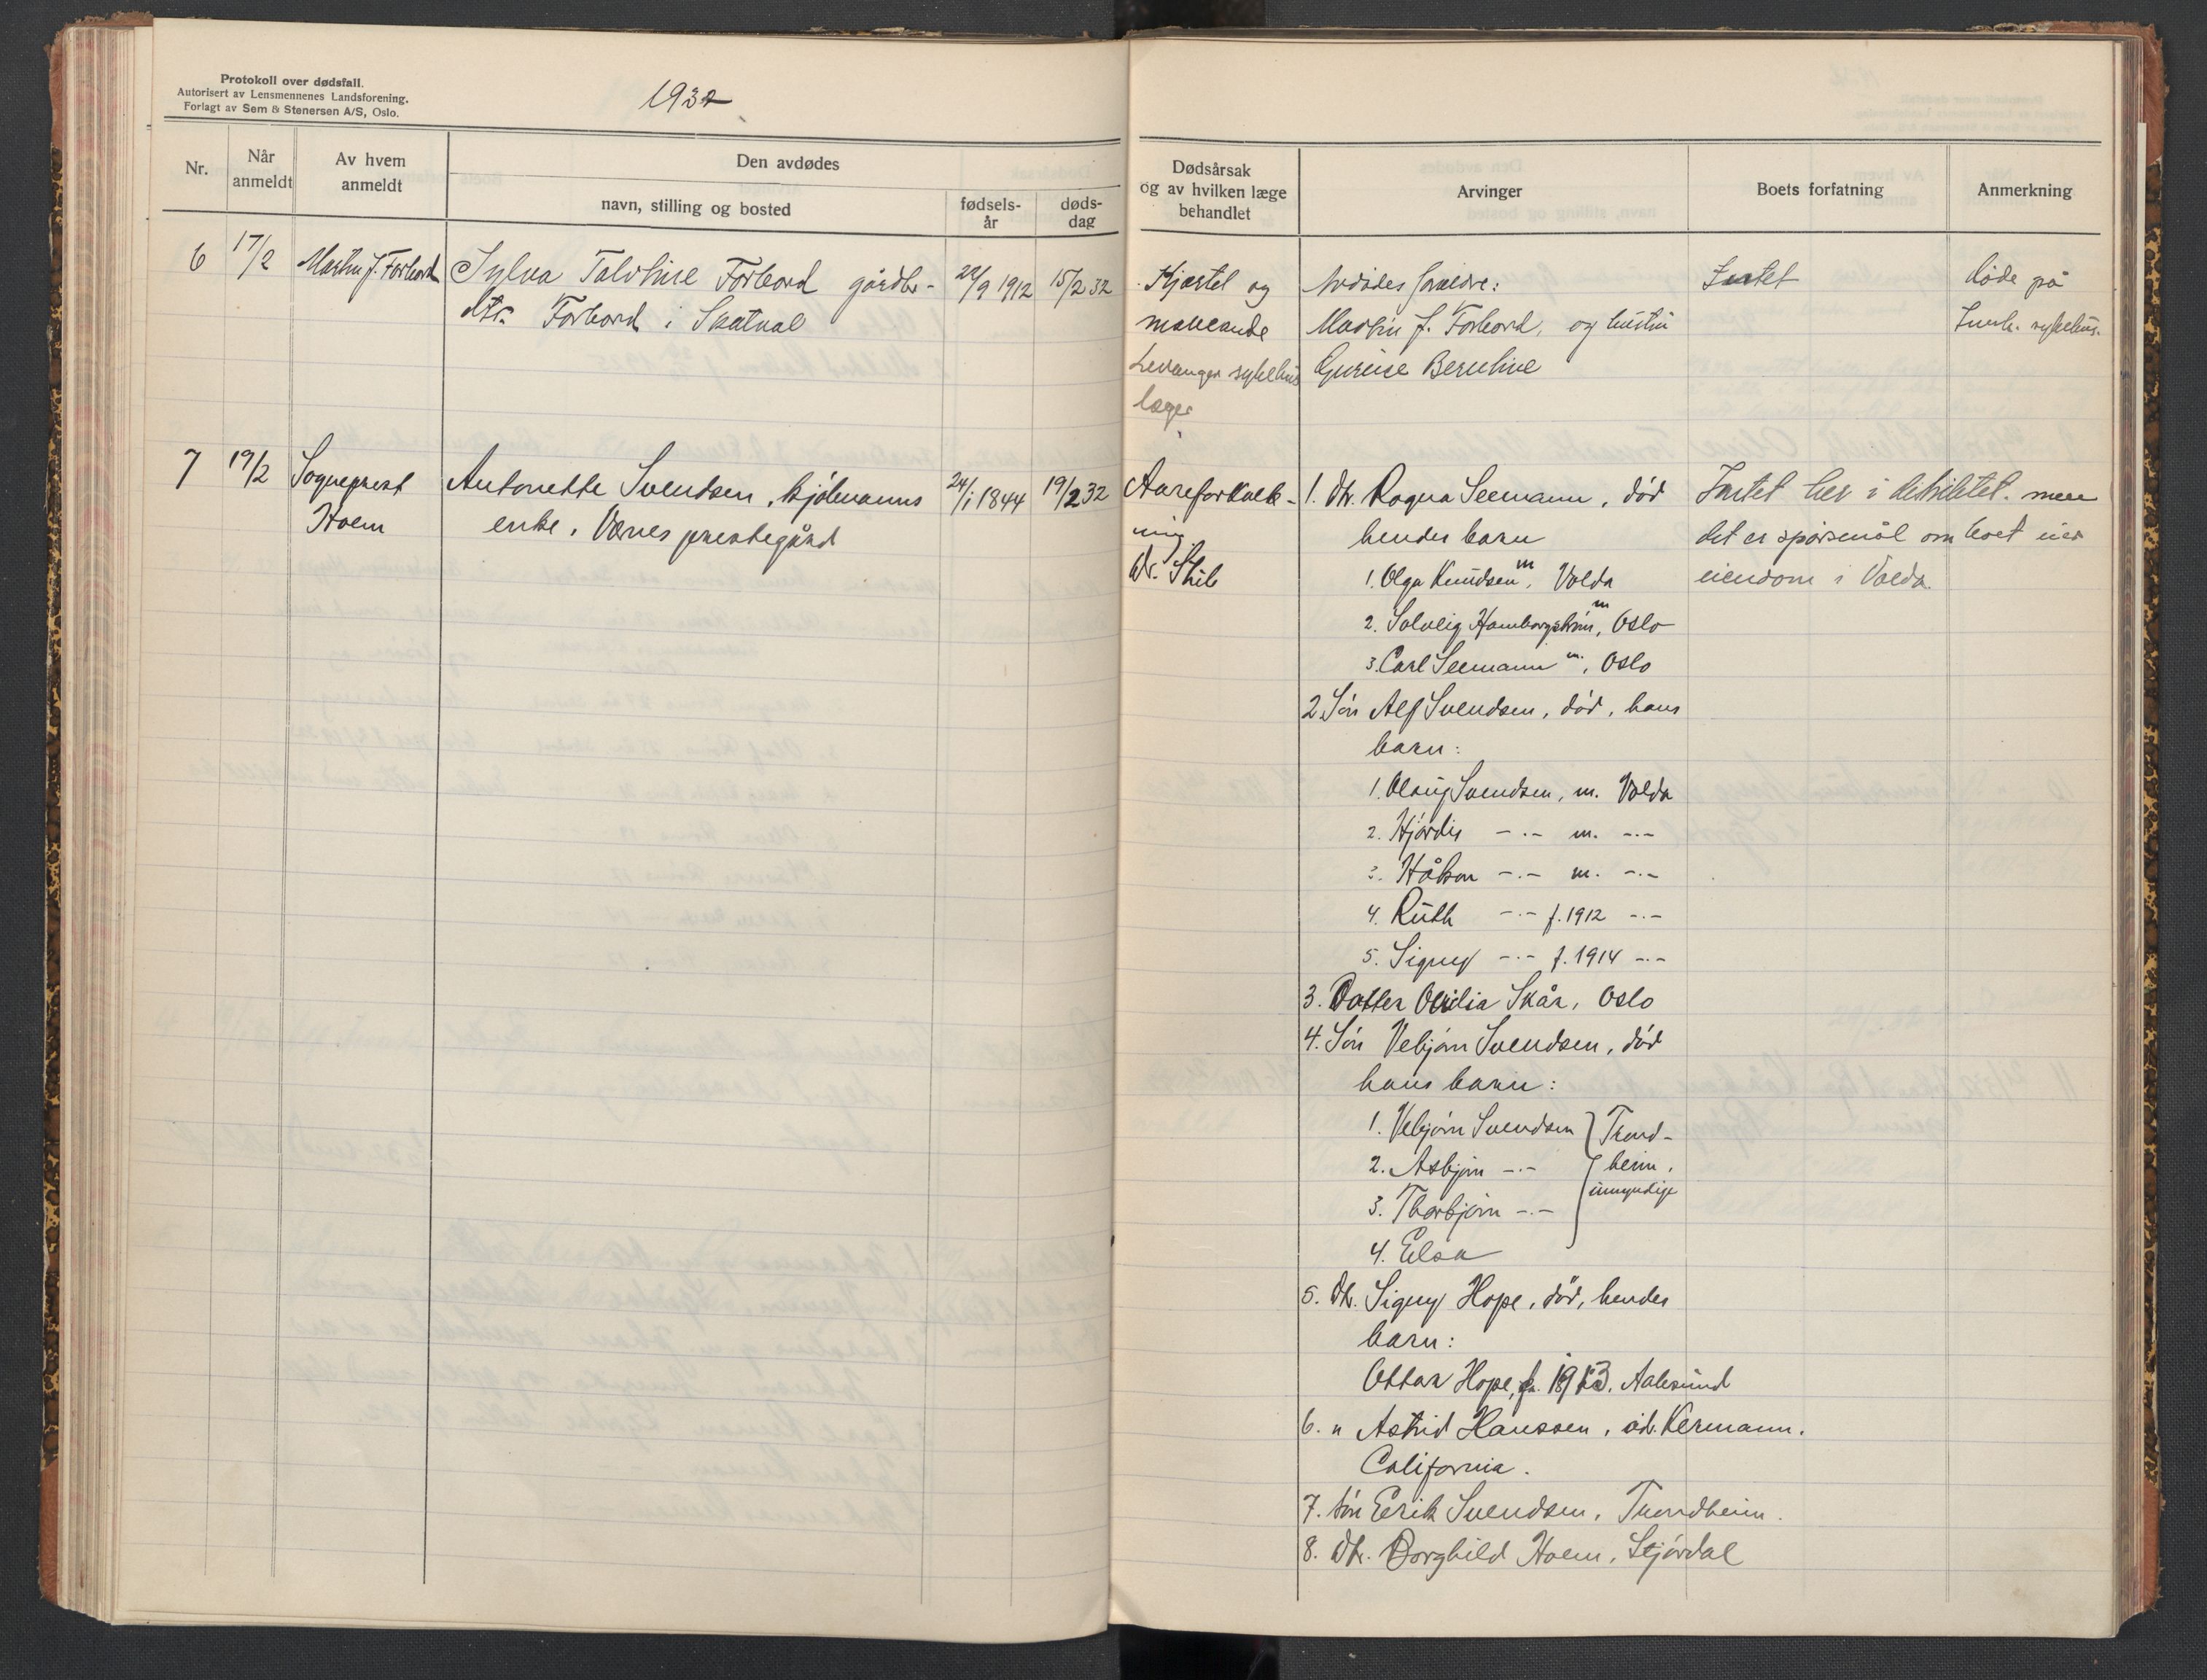 Protokoll over dødsfall.
Autorisert av Lensmennenes Landsforening.
Forlagt av Sem & Stenersen A/S, Oslo.
1932
Nr.
Når
anmeldt
Av hvem
anmeldt
Den avdødes
navn, stilling og bosted
fødsels-
år
døds-
dag
Dødsårsak
og av hvilken læge
behandlet
Arvinger
Boets forfatning
Anmerkning
6
17/2
Martin J. Forbord
Sylva Forbord gårdbr.-
dtr. Forbord i Skatval
22/9 1912
15/2 32
Hjertel og
Levanger sykehus
læger
Avdødes forældre:
Martin J. Forbord, og hustru
Gurine Berntine
Intet
døde på
Innh. sykehus.
7
19/2
Sogneprest
Hoem
Antonette Svendsen, kjøbmanns
enke, Værnes prestegård
24/1 1844
19/2 32
Aareforkalk-
ning
dr.
1. Dtr. Ragna Seemann, død
hendes barn
1. Olga Knudsen m, Volda
2. Solveig Hamborgstrøm m, Oslo
3. Carl Seemann m., Oslo
2. Søn Alf Svendsen, død, hans
barn:
1. Olaug Svendsen, m. Volda
2. Hjørdis -.- m. -.-
3. Håkon -.- m. -.-
4. Ruth -.- f. 1912 -.-
5. Signy -.- f. 1914 -.-
3. Datter Skår, Oslo
4. Søn Vebjørn Svendsen, død
hans barn:
1. Vebjørn Svendsen } Trond-
2. Asbjørn -.- heim.
3. Thorbjørn -.- umyndige
4. Elsa
5. Dtr. Signy Hope, død, hendes
barn:
Ottar Hope, f. 1913. Aalesund
6. " Astrid Hanssen, adr. Kermann.
California.
7. søn Eerik Svendsen, Trondheim.
8. Dtr. Borghild Hoem, Stjørdal
Intet her i distriktet. men
det er spørsmål om boet eier
eiendom i Volda.